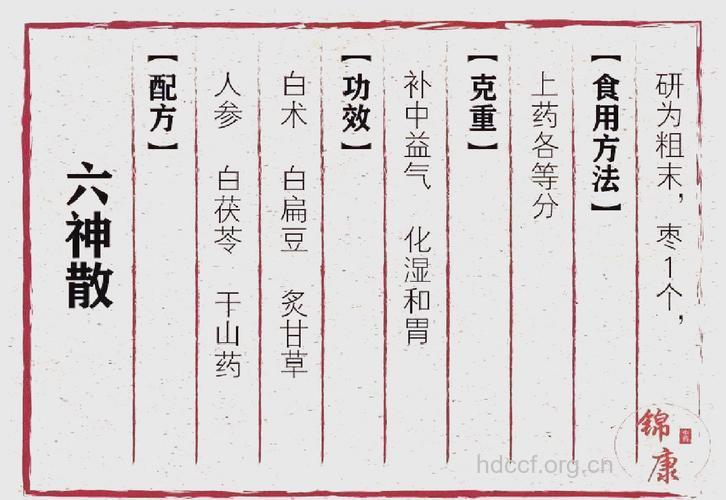 六神散
【配方】
人参 白茯苓 干山药
白术 白扁豆 炙甘草
【功效】
补中益气 化湿和胃
【克重】
上药各等分
【食用方法】
研为粗末，枣1个，
锦康
hdccf.org.cn